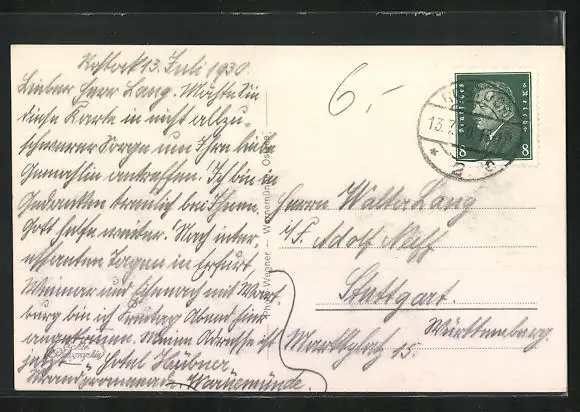 Rostock 13. Juli 1930.
Lieber Herr Lang. Möchte Sie
diese Karte in nicht allzu
schwerer Sorge um Ihre liebe
Gemahlin antreffen. Ich bin in
Gedanken treulich bei Ihnen.
Gott helfe weiter. Nach inter-
essanten Tagen in Erfurt
Weimar und Eisenach mit Wart
burg bin ich Freitag Abend hier
angekommen. Meine Adresse ist
jetzt Hotel Hübner
Strandpromenade Warnemünde.
6.-
Photo-Wegner — Warnemünde, Ostsee
Deutsches Reich
8 8
13.7.
* 2 c
Herrn Walter Lang
i/F. Adolf Neff
Stuttgart.
Württemberg
Marktplatz 15.